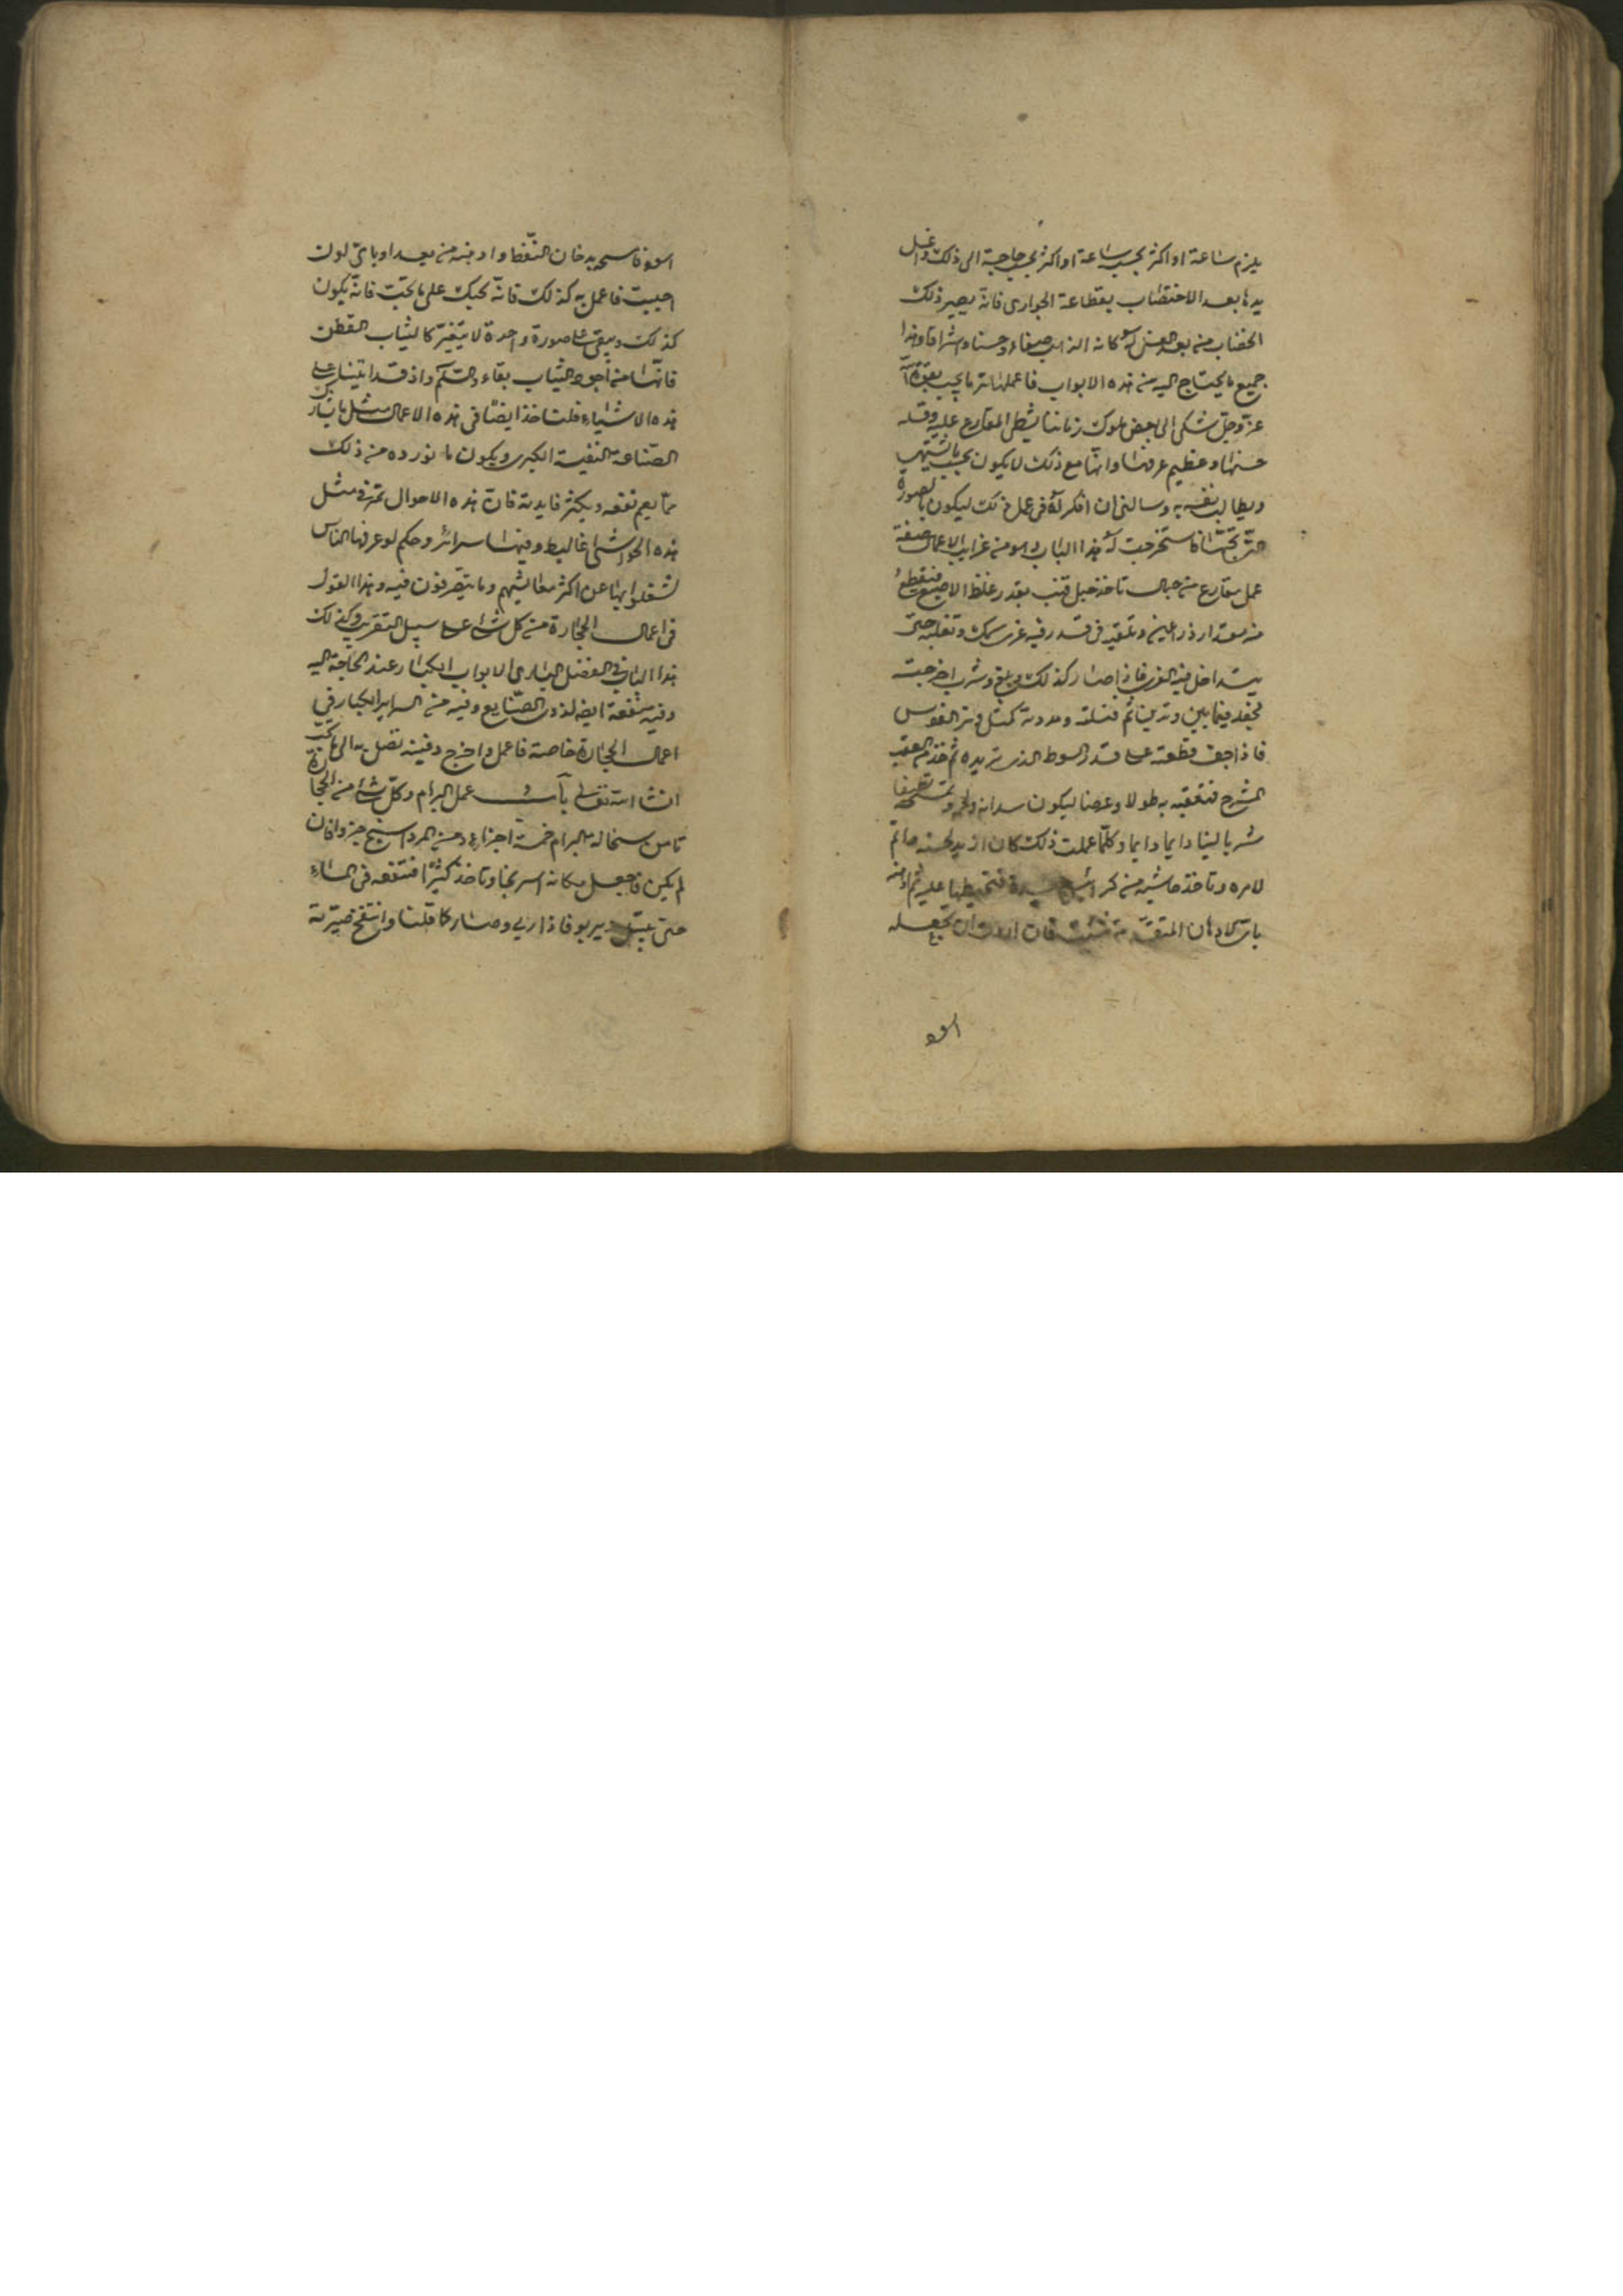 يلزم ساعة او اكثر بحسب ساعة او اكثر بحسب حاجة الى ذلك واغسل
يدها بعد الاختضاب بقطاعة الجوارى فانه يصير ذلك
الخضاب منه بعد الغسل كانه الذهب صفاء وحسنا واشراقا وهذا
جميع ما يحتاج اليه من هذه الابواب فاعملها تر ما يجب بقوة الله
عز وجل شكى الى بعض ملوك زماننا المقارع عليه وقلة
حسنها وعظيم وانها مع ذلك لا يكون بحسب ما يشتهى
ويطالب نفسه به وسالنى ان افكر له فى عمل ذلك ليكون بالصورة
التى يحبها فاستخرجت له هذا الباب وهو من غرايب الاعمال صفة
عمل مقارع من حبال تاخذ حبل قنب بقدر غلظ الاصبع فتقطع
منه مقدار ذراعين وتلقيه فى قدر فيه غرى سمك وتغليه حتى
يتداخل فيه الغرى فاذا صار كذلك وشرب اخرجته
فيما بين وتدين ثم فتلته ومددته كمثل وتر القوس
فاذا جف قطعته على قدر السوط الذى تريده ثم خذ العقب
المشرح فتعقبه به طولا وعرضا ليكون سداته ولحمة
شربا لينا دايما دايما وكلما عملت ذلك كان ازيد لحسنه
لامره وتاخذ حاشية من جيدة فتخيطها عليه ثم ادهنه
باى الادهان المتقدمة شئت فان اردت ان تجعله
اسود
اسود فاسحه بدخان النفط وادهنه من بعد او باى لون
احببت فاعمل به كذلك فانه يجيك على ما تحب فانه يكون
كذلك ويبقى على صورة واحدة لا يتغير كالثياب القطن
فانها من اجود الثياب بقاء والسلم واذ قد اتينا على
هذه الاشياء فلناخذ ايضا فى هذه الاعمال مثل
الصناعة النفيسة الكبرى ويكون ما نورده من ذلك
مما يعم نفعه ويكثر فايدته فان هذه الاحوال تمر فى مثل
هذه وفيها سرائر وحكم لو عرفها الناس
لشغلوا بها عن اكثر معايشهم وما يتصرفون فيه وهذا القول
فى اعمال الحجارة من كل شئ على سبيل التقريب وكذلك
هذا الباب فى الفضل الابواب الكبار عند الحاجة اليه
وفيه منفعة ايضا لذوى الصنايع وفيه من السراير الكبار فى
اعمال الحجارة خاصة فاعمل واخرج دفينه تصل به الى ما تحب
انشا الله تعالى باب فى عمل البرام وكل شئ من الحجارة
تاخذ من سحالة البرام خمسة اجزاء ومن المرداسنج جزو فان
لم يكن فاجعل مكانه اسرنجا وتاخذ كثيرا فتنقعه فى الماء
حتى يبتل ويربو فاذا ربى وصار كما قلنا وانتفخ صيرته